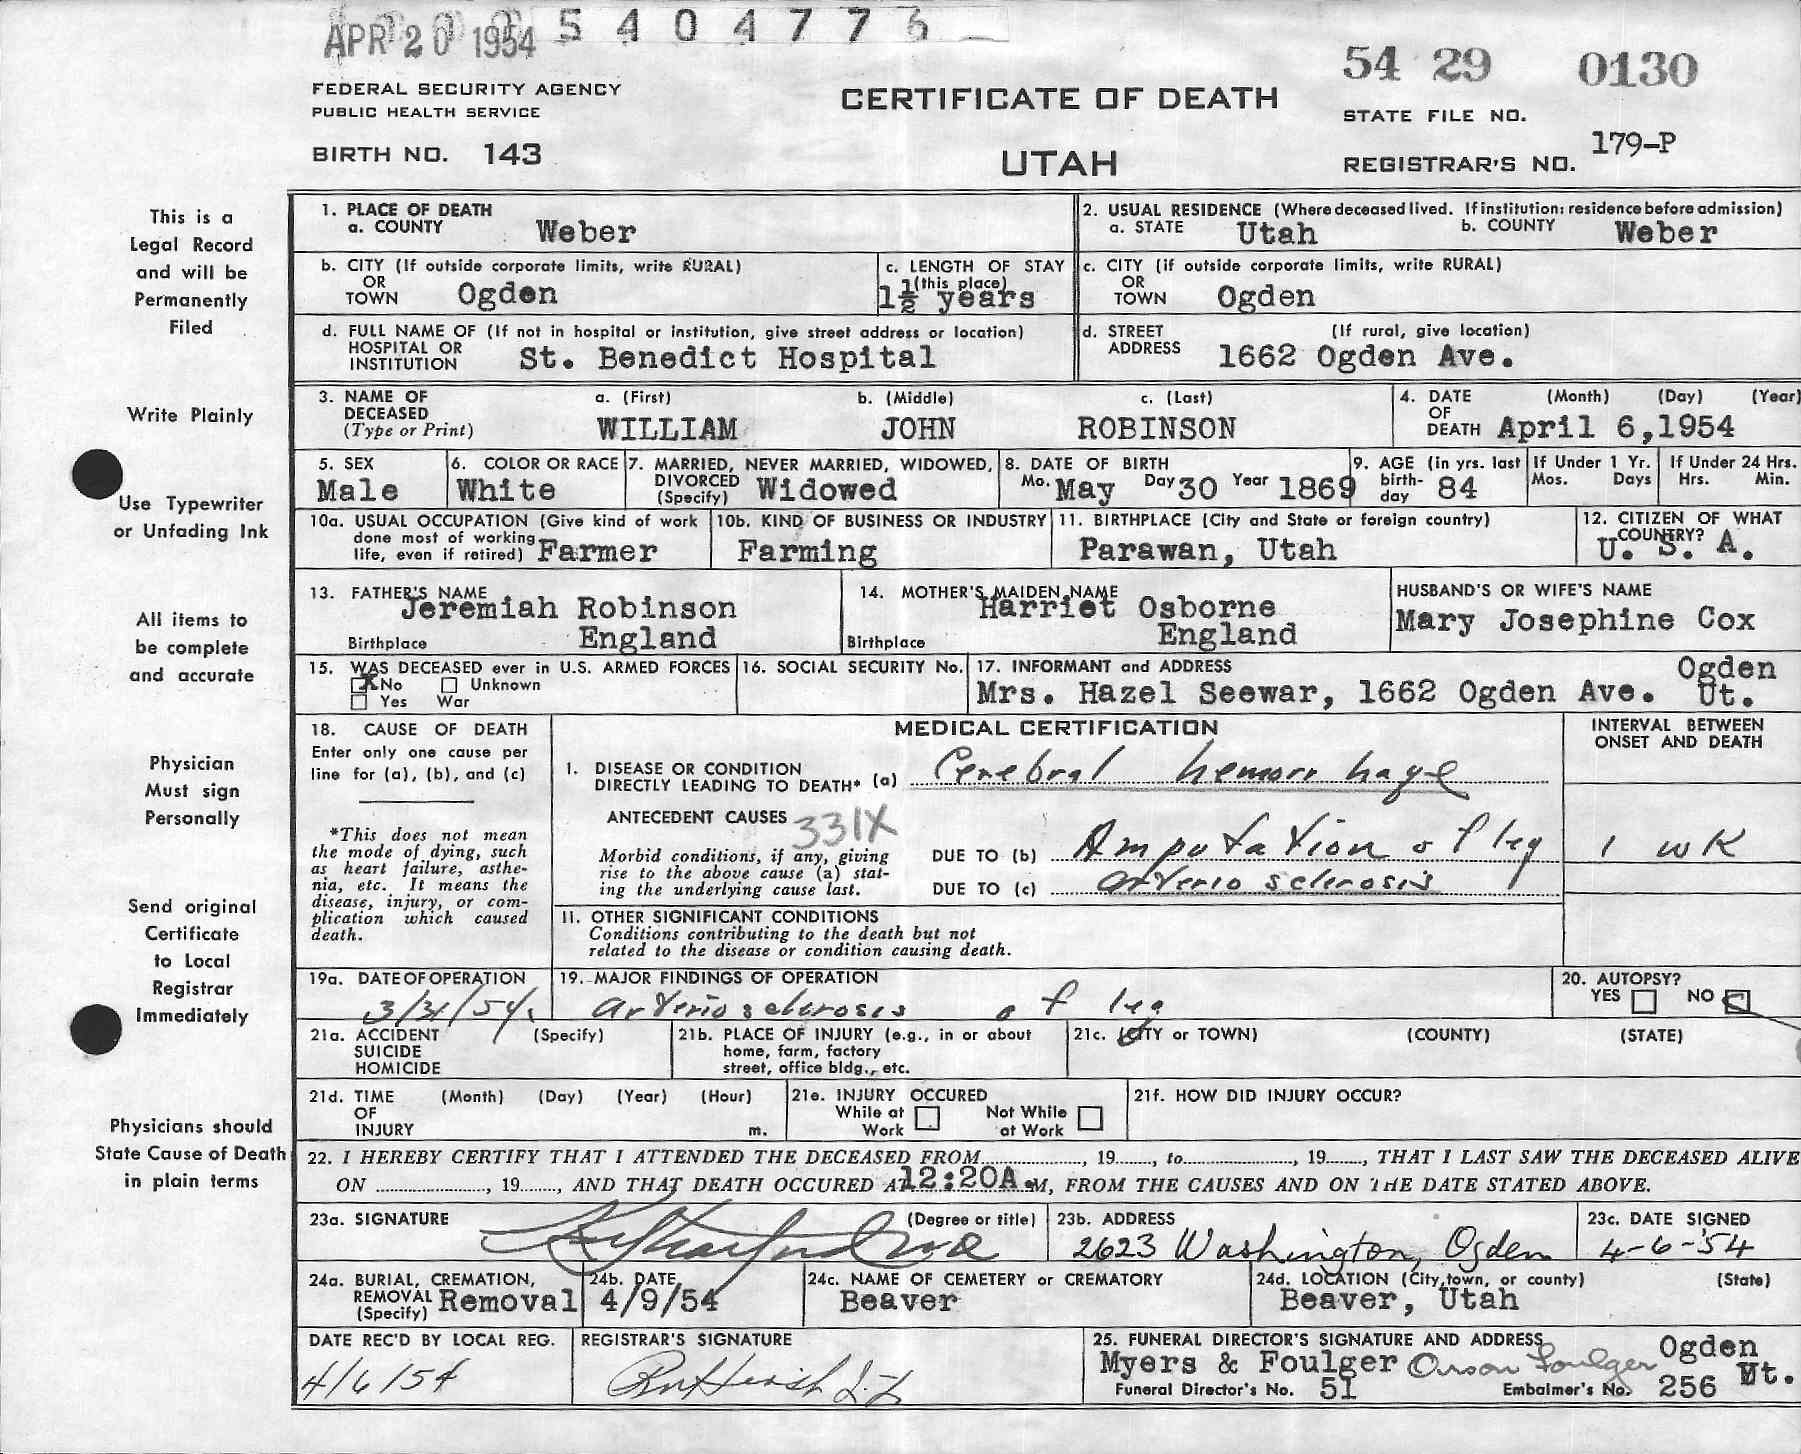 APR 20 1954 5 4 0 4 7 7 6
54 29 0130
FEDERAL SECURITY AGENCY
PUBLIC HEALTH SERVICE
CERTIFICATE OF DEATH
STATE FILE NO.
BIRTH NO. 143
UTAH
REGISTRAR'S NO. 179-P
This is a
Legal Record
and will be
Permanently
Filed
Write Plainly
Use Typewriter
or Unfading Ink
All items to
be complete
and accurate
Physician
Must sign
Personally
Send original
Certificate
to Local
Registrar
Immediately
Physicians should
State Cause of Death
in plain terms
1. PLACE OF DEATH
a. COUNTY Weber
2. USUAL RESIDENCE (Where deceased lived. If institution: residence before admission)
a. STATE Utah b. COUNTY Weber
b. CITY (If outside corporate limits, write RURAL)
OR
TOWN Ogden
c. LENGTH OF STAY
(this place)
1½ years
c. CITY (if outside corporate limits, write RURAL)
OR
TOWN Ogden
d. FULL NAME OF (If not in hospital or institution, give street address or location)
HOSPITAL OR
INSTITUTION St. Benedict Hospital
d. STREET (If rural, give location)
ADDRESS 1662 Ogden Ave.
3. NAME OF a. (First) b. (Middle) c. (Last)
DECEASED
(Type or Print) WILLIAM JOHN ROBINSON
4. DATE (Month) (Day) (Year)
OF
DEATH April 6,1954
5. SEX
Male
6. COLOR OR RACE
White
7. MARRIED, NEVER MARRIED, WIDOWED,
DIVORCED
(Specify) Widowed
8. DATE OF BIRTH
Mo. May Day 30 Year 1869
9. AGE (in yrs. last
birth-
day 84
If Under 1 Yr.
Mos. Days
If Under 24 Hrs.
Hrs. Min.
10a. USUAL OCCUPATION (Give kind of work
done most of working
life, even if retired) Farmer
10b. KIND OF BUSINESS OR INDUSTRY
Farming
11. BIRTHPLACE (City and State or foreign country)
Parawan, Utah
12. CITIZEN OF WHAT
COUNTRY?
U. S. A.
13. FATHER'S NAME
Jeremiah Robinson
Birthplace England
14. MOTHER'S MAIDEN NAME
Harriet Osborne
Birthplace England
HUSBAND'S OR WIFE'S NAME
Mary Josephine Cox
15. WAS DECEASED ever in U.S. ARMED FORCES
X No Unknown
Yes War
16. SOCIAL SECURITY No.
17. INFORMANT and ADDRESS Ogden
Mrs. Hazel Seewar, 1662 Ogden Ave. Ut.
18. CAUSE OF DEATH
Enter only one cause per
line for (a), (b), and (c)
*This does not mean
the mode of dying, such
as heart failure, asthe-
nia, etc. It means the
disease, injury, or com-
plication which caused
death.
MEDICAL CERTIFICATION
INTERVAL BETWEEN
ONSET AND DEATH
I. DISEASE OR CONDITION
DIRECTLY LEADING TO DEATH* (a) Cerebral hemorrhage
ANTECEDENT CAUSES 331X
Morbid conditions, if any, giving
rise to the above cause (a) stat-
ing the underlying cause last.
DUE TO (b) Amputation of leg 1 wk
DUE TO (c) arteriosclerosis
II. OTHER SIGNIFICANT CONDITIONS
Conditions contributing to the death but not
related to the disease or condition causing death.
19a. DATE OF OPERATION
3/31/54
19. MAJOR FINDINGS OF OPERATION
arteriosclerosis of leg
20. AUTOPSY?
YES NO
21a. ACCIDENT (Specify)
SUICIDE
HOMICIDE
21b. PLACE OF INJURY (e.g., in or about
home, farm, factory
street, office bldg., etc.
21c. (CITY or TOWN) (COUNTY) (STATE)
21d. TIME (Month) (Day) (Year) (Hour)
OF
INJURY m.
21e. INJURY OCCURED
While at Work Not While at Work
21f. HOW DID INJURY OCCUR?
22. I HEREBY CERTIFY THAT I ATTENDED THE DECEASED FROM, 19, to, 19, THAT I LAST SAW THE DECEASED ALIVE
ON, 19, AND THAT DEATH OCCURED AT 12:20A.M, FROM THE CAUSES AND ON THE DATE STATED ABOVE.
23a. SIGNATURE (Degree or title)
23b. ADDRESS
2623 Washington, Ogden
23c. DATE SIGNED
4-6-54
24a. BURIAL, CREMATION,
REMOVAL
(Specify) Removal
24b. DATE
4/9/54
24c. NAME OF CEMETERY or CREMATORY
Beaver
24d. LOCATION (City, town, or county) (State)
Beaver, Utah
DATE REC'D BY LOCAL REG.
4/6/54
REGISTRAR'S SIGNATURE
25. FUNERAL DIRECTOR'S SIGNATURE AND ADDRESS Ogden
Myers & Foulger Orson Foulger Ut.
Funeral Director's No. 51 Embalmer's No. 256